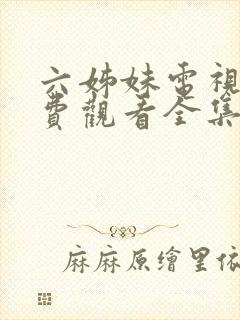 六姊妹電視
費觀看全集
麻麻原繪里依